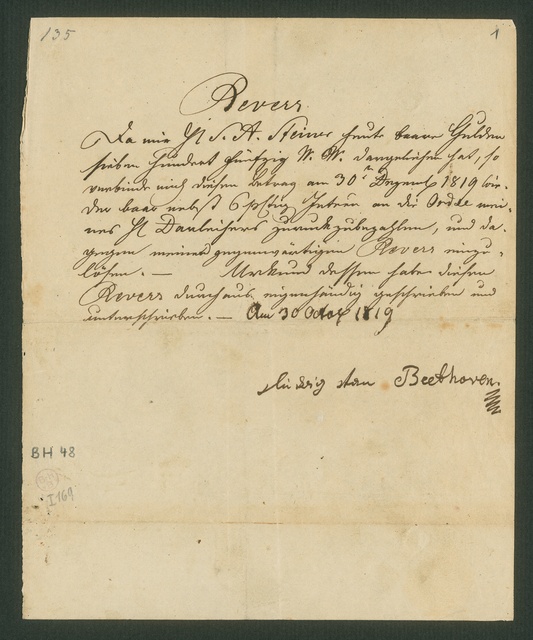 135
1
Revers
Da mir H S. A. Steiner heute baare Gulden
sieben hundert fünfzig W. W. dargeliehen hat, so
verbinde mich diesen Betrag am 30 Dezemb 1819 wie-
der baar nebst 6 an die Ordre mei-
nes H Darleihers zurückzubezahlen, und da-
gegen meinen gegenwärtigen Revers einzu-
lösen. — Urkund dessen habe diesen
Revers durchaus eigenhändig geschrieben und
unterschrieben. — Am 30 1819
Ludwig van Beethoven
BH 48
I 169